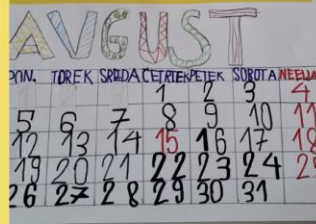 AVGUST
PON. TOREK SREDA ČETRTEK PETEK SOBOTA NEDELJA
1 2 3 4
5 6 7 8 9 10 11
12 13 14 15 16 17 18
19 20 21 22 23 24 25
26 27 28 29 30 31